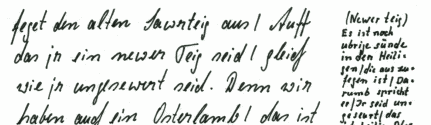 feget den alten Sawrteig aus / Auff
das jr ein newer Teig seid / gleich
wie jr ungesewrt seid. Denn wir
haben auch ein Osterlamb / das ist
(Newer teig)
Es ist noch
ubrige sünde
in den Heili-
gen / die aus zu-
fegen ist / Da-
rumb spricht
er / Jr seid un-
geseurt / das